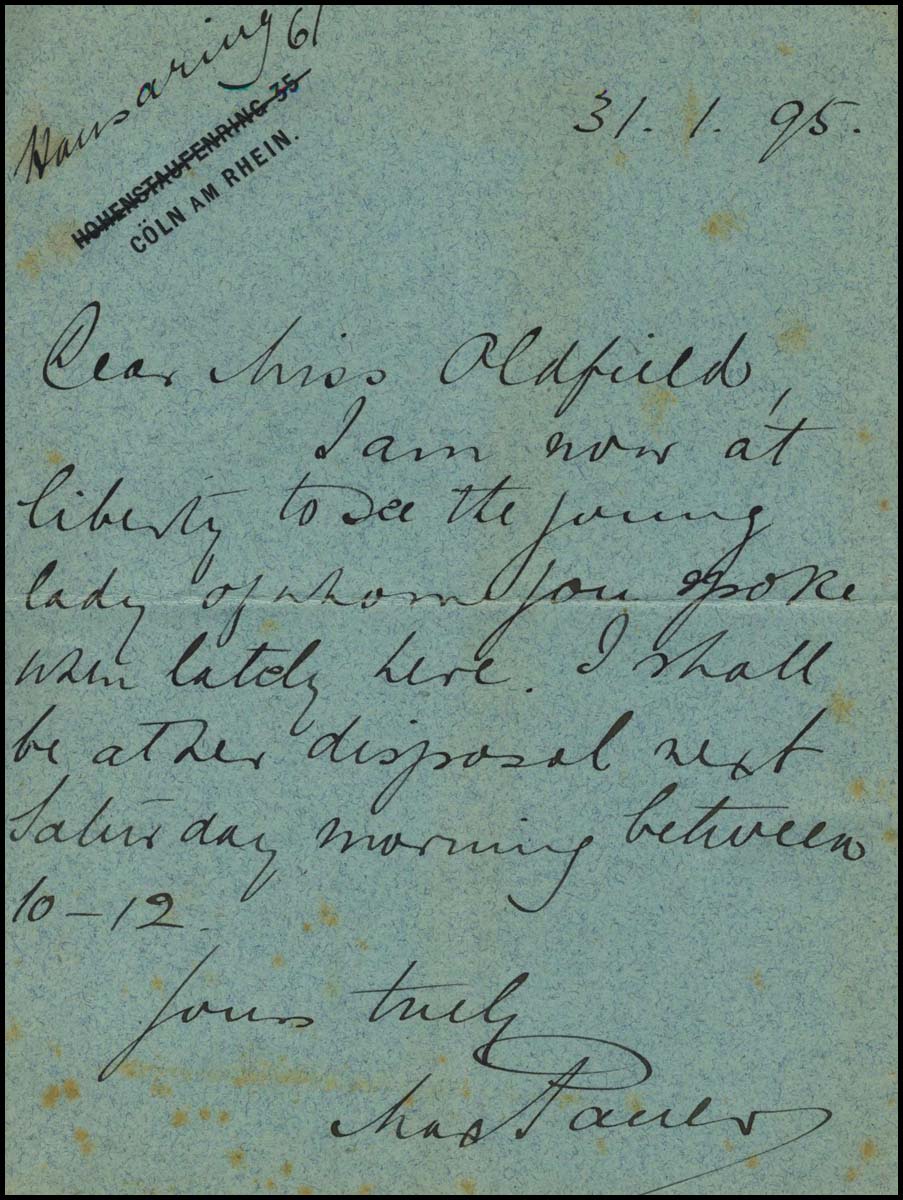 Hansaring 61
HOHENSTAUFENRING 35
CÖLN AM RHEIN.
31. 1. 95.
Dear Miss Oldfield,
I am now at
liberty to see the young
lady of whom you spoke
when lately here. I shall
be at her disposal next
Saturday morning between
10–12.
Yours truely
Max Pauer